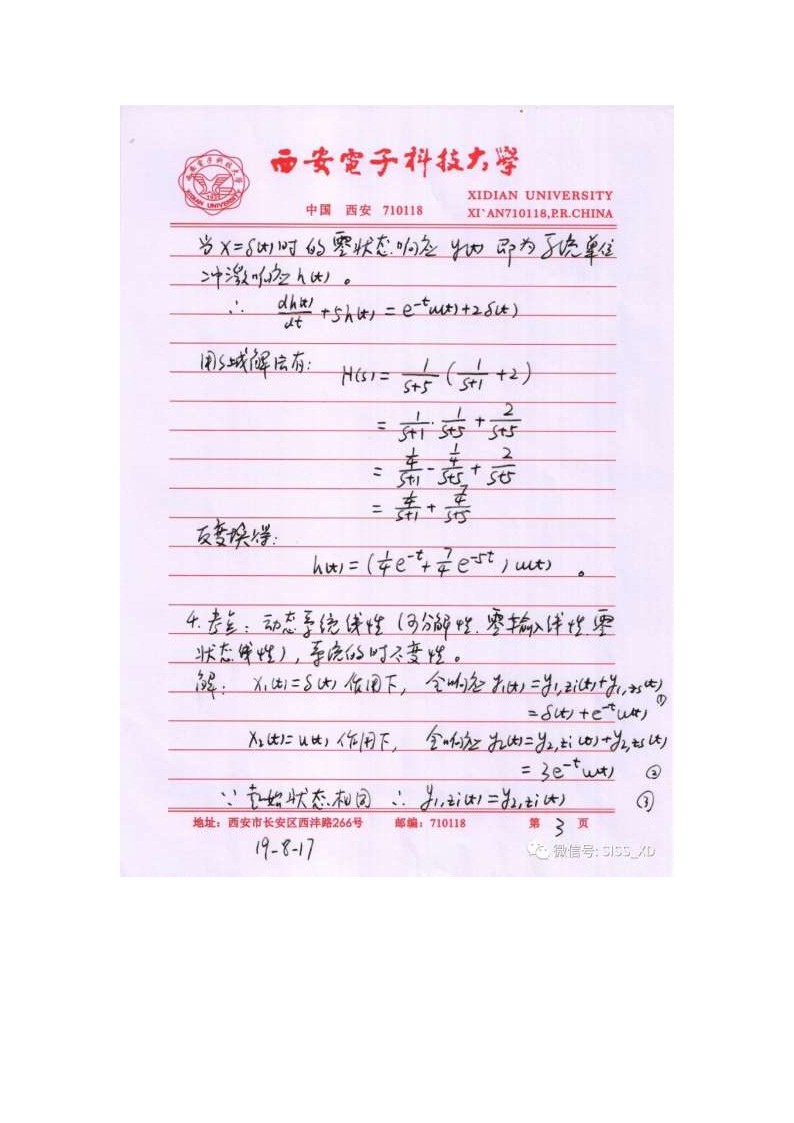 西安電子科技大學
XIDIAN UNIVERSITY
中国 西安 710118
XI`AN710118,P.R.CHINA
当 x=δ(t)时的零状态响应 y(t) 即为系统单位
冲激响应 h(t) 。
∴ dh(t)/dt + 5h(t) = e^{-t}u(t)+2δ(t)
用S域解法有: H(s) = 1/(s+5) (1/(s+1) +2)
= 1/(s+1) · 1/(s+5) + 2/(s+5)
= (1/4)/(s+1) - (1/4)/(s+5) + 2/(s+5)
= (1/4)/(s+1) + (7/4)/(s+5)
反变换得:
h(t) = (1/4 e^{-t} + 7/4 e^{-5t}) u(t) 。
4. 考点: 动态系统线性 (可分解性、零输入线性、零
状态线性), 系统的时不变性。
解: x₁(t)=δ(t) 作用下, 全响应 y₁(t) = y₁,zi(t)+y₁,zs(t)
= δ(t) + e^{-t}u(t) ①
x₂(t)=u(t) 作用下, 全响应 y₂(t)=y₂,zi(t)+y₂,zs(t)
= 3e^{-t}u(t) ②
∵ 起始状态相同 ∴ y₁,zi(t) = y₂,zi(t) ③
地址: 西安市长安区西沣路266号 邮编: 710118 第 3 页
19-8-17
微信号: SISS_XD